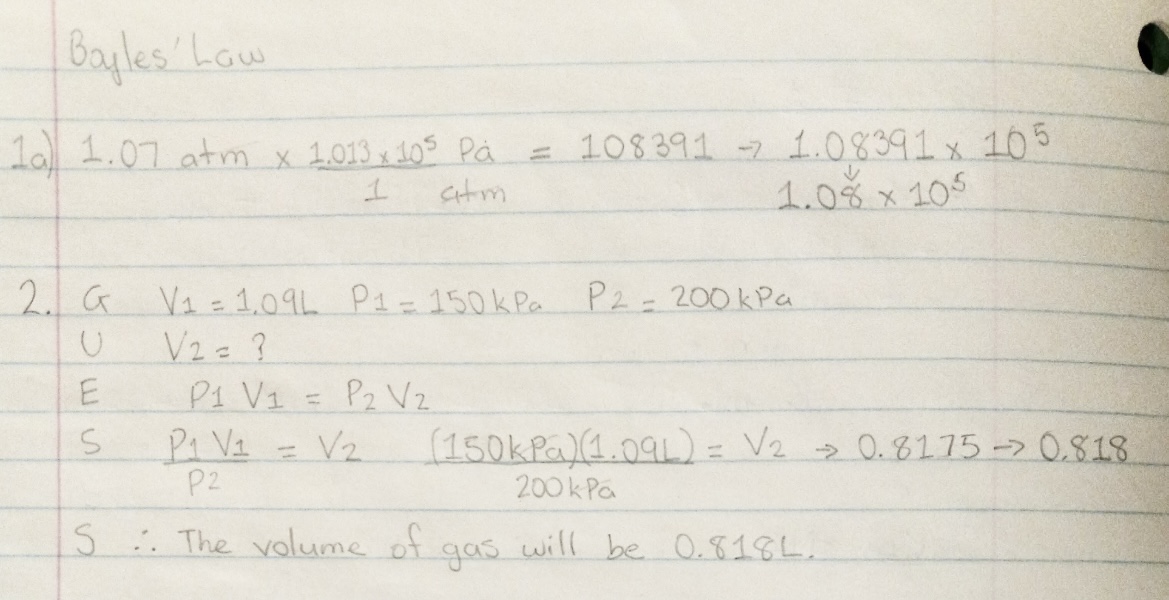 Boyles' Law
1a) 1.07 atm x 1.013 x 10⁵ Pa = 108391 → 1.08391 x 10⁵
1 atm ↓ 1.08 x 10⁵
2. G V1 = 1.09L P1 = 150kPa P2 = 200kPa
U V2 = ?
E P1 V1 = P2 V2
S P1 V1 = V2 (150kPa)(1.09L) = V2 → 0.8175 → 0.818
P2 200kPa
S ∴ The volume of gas will be 0.818L.